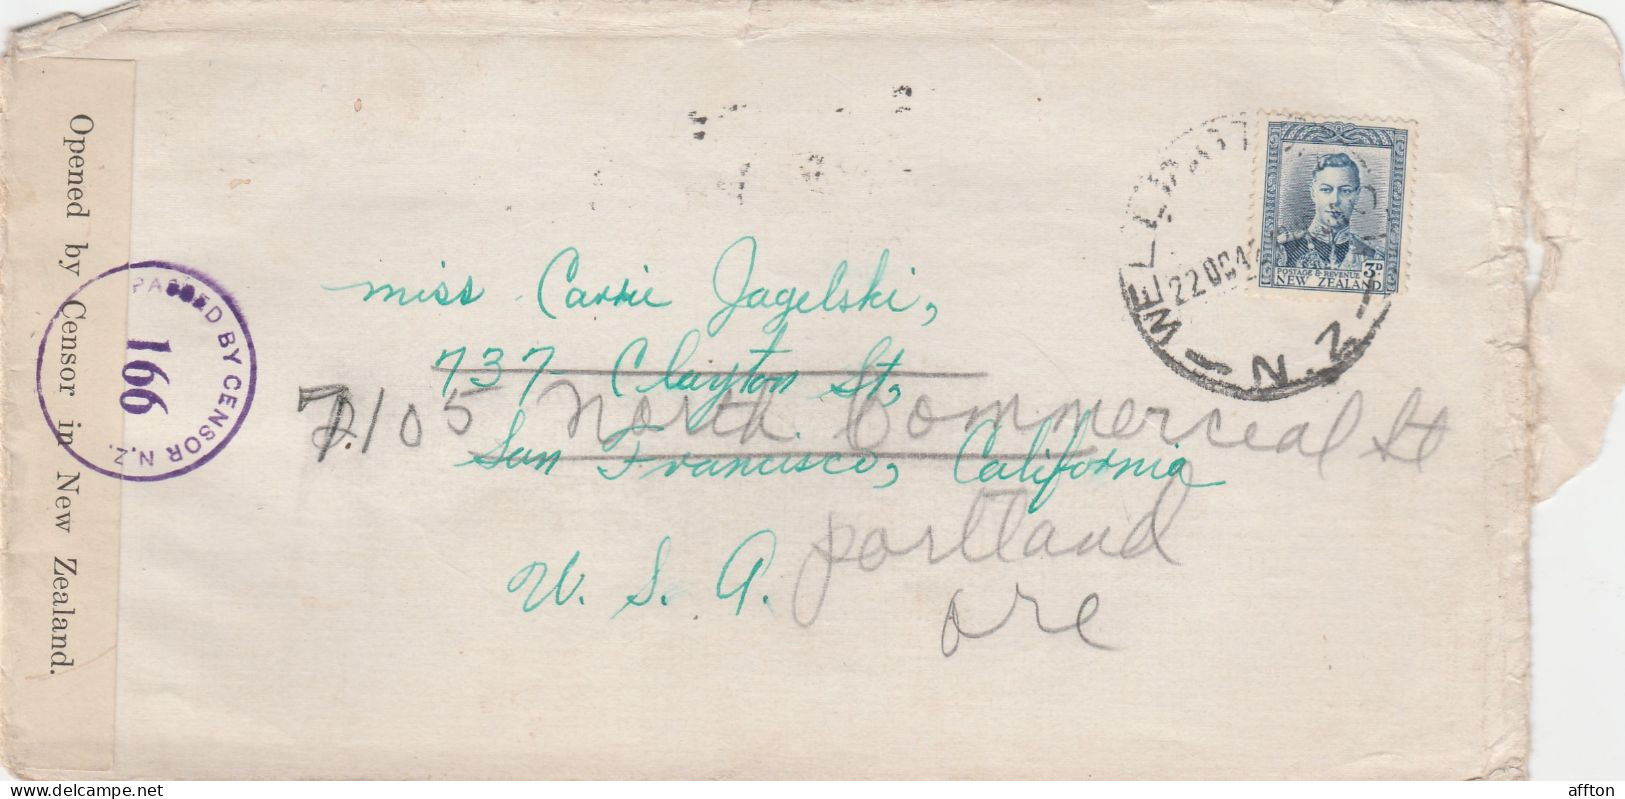 Opened by Censor in New Zealand.
PASSED BY CENSOR N.Z.
166
WELLINGTON
22 OC 4
N.Z.
3D
POSTAGE & REVENUE
NEW ZEALAND
Miss Carrie Jagelski,
737 Clayton St,
7105 North Commerceal St
San Francisco, California
portland
ore
U. S. A.
delcampe.net
affton